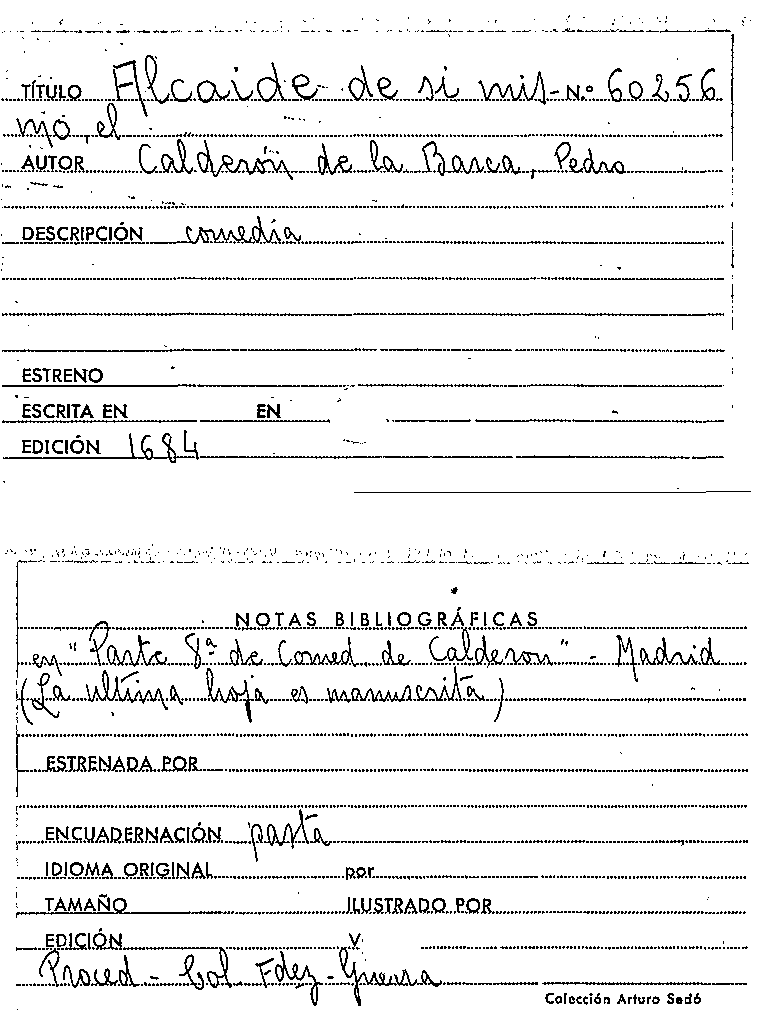 TÍTULO Alcaide de si mis- N.º 60256
mo, el
AUTOR Calderón de la Barca, Pedro
DESCRIPCIÓN comedia
ESTRENO
ESCRITA EN EN
EDICIÓN 1684
NOTAS BIBLIOGRÁFICAS
en "Parte 8ª de Comed. de Calderon" - Madrid
(La ultima hoja es manuscrita)
ESTRENADA POR
ENCUADERNACIÓN pasta
IDIOMA ORIGINAL por
TAMAÑO ILUSTRADO POR
EDICIÓN V.
Proced - Col. Fdez-Guerra
Colección Arturo Sedó